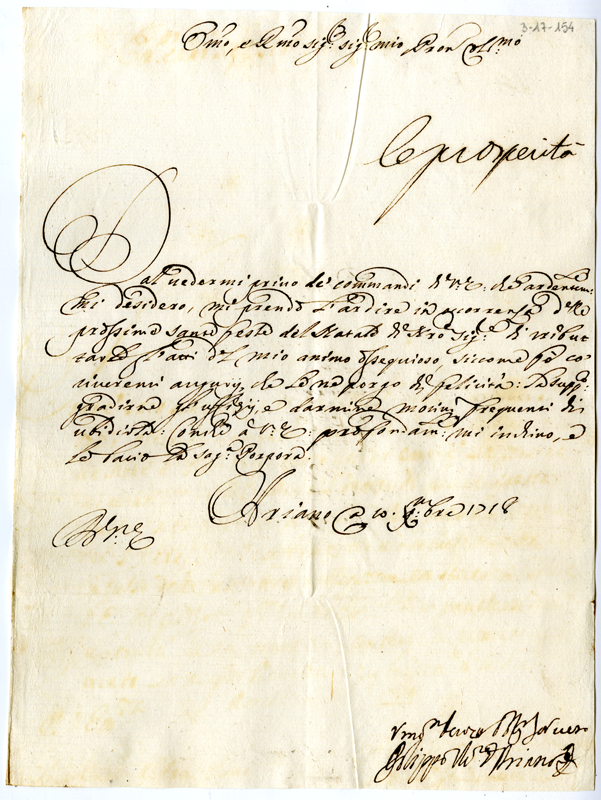 3-17-154
Emo, e Rmo sig.r sig.r mio, Pron Col.mo
Le prosperità
Dal vedermi privo de' commandi di V.E: che ardentem:
mi desidero, mi prendo l'ardire in occorrenza delle
prossime sante feste del Natale di Nro Sig.re di tribut
tarle l'atti del mio animo ossequioso, siccome
augurij, che le ne porgo di felicità. La supp.
gradirne gl'ufficij, e darmine motivi frequenti di
ubidirla: Con che à V:E: profondam: mi inchino, e
le bacio la Sag.a Porpora.
Ariano 10 Xmbre 1718
Filippo Ariano